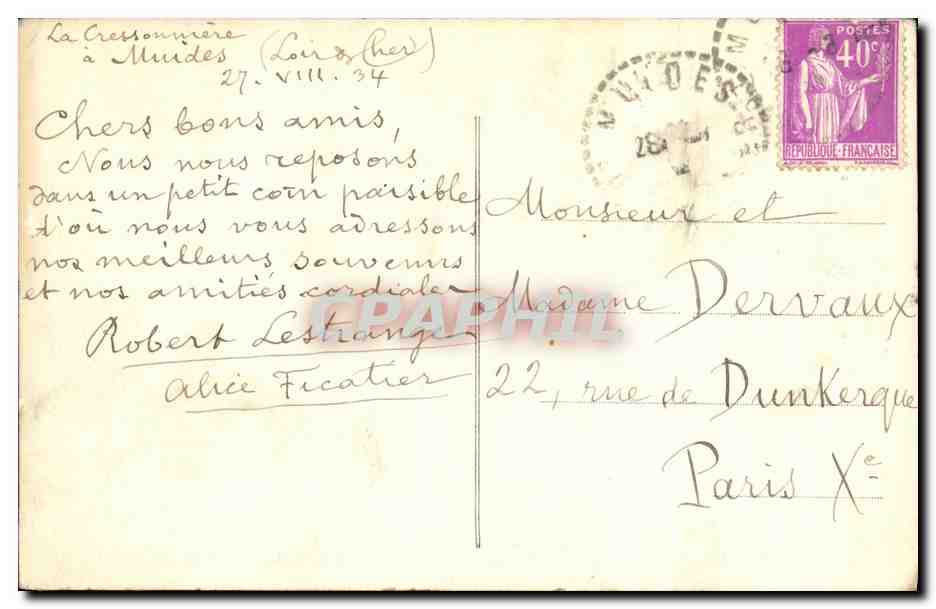 La Cressonnière
à Muides (Loir & Cher)
27. VIII. 34
Chers bons amis,
Nous nous reposons
dans un petit coin paisible
d'où nous vous adressons
nos meilleurs souvenirs
et nos amitiés cordiales
Robert Lestrange
Alice Ficatier
Monsieur et
Madame Dervaux
22, rue de Dunkerque
Paris Xe
MUIDES
28
POSTES
40c
REPUBLIQUE FRANÇAISE
CPAPHIL